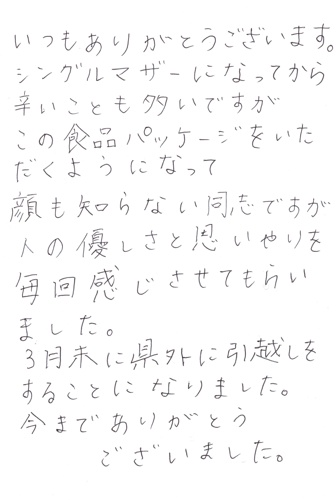 いつもありがとうございます。
シングルマザーになってから
辛いことも多いですが
この食品パッケージをいた
だくようになって
顔も知らない同志ですが
人の優しさと思いやりを
毎回感じさせてもらい
ました。
3月末に県外に引越しを
することになりました。
今までありがとう
ございました。